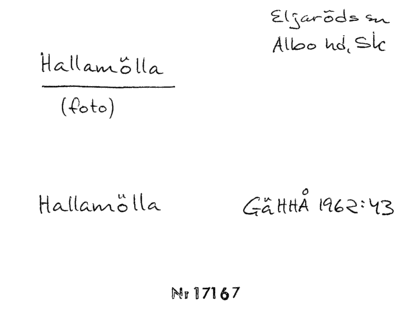 Eljaröds sn
Albo hd, Sk
Hallamölla
(foto)
Hallamölla GäHHÅ 1962:43
Nr 17167